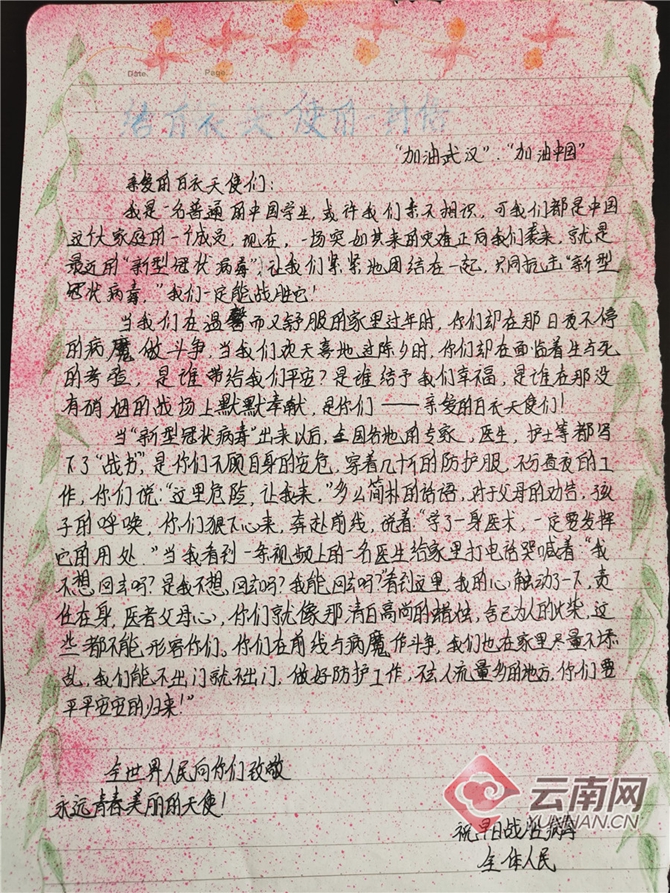 Date. Page.
给百衣天使的一封信
“加油武汉”.“加油中国”
亲爱的百衣天使们:
我是一名普通的中国学生,或许我们素不相识,可我们都是中国
这个大家庭的一个成员,现在,一场突如其来的灾难正向我们袭来,就是
最近的“新型冠状病毒”,让我们紧紧地团结在一起,共同抗击“新型
冠状病毒,”我们一定能战胜它!
当我们在温馨而又舒服的家里过年时,你们却在那日夜不停
的病魔做斗争,当我们欢天喜地过除夕时,你们却在面临着生与死
的考验,是谁带给我们平安?是谁给予我们幸福,是谁在那没
有硝烟的战场上默默奉献,是你们——亲爱的百衣天使们!
当“新型冠状病毒”出来以后,全国各地的专家,医生,护士等都写
下了“战书”,是你们不顾自身的安危,穿着几十斤的防护服,不分昼夜的工
作,你们说:“这里危险,让我来,”多么简朴的话语,对于父母的劝告,孩
子的呼唤,你们狠下心来,奔赴前线,说着“学了一身医术,一定要发挥
它的用处.”当我看到一条视频上的一名医生给家里打电话哭喊着:“我
不想回去吗?是我不想回去吗?我能回去吗?”看到这里,我的心触动了一下,责
任在身,医者父母心,你们就像那清白高尚的蜡烛,舍己为人的火柴,这
些都不能形容你们,你们在前线与病魔作斗争,我们也在家里尽量不添
乱,我们能不出门就不出门,做好防护工作,不去人流量多的地方,你们要
平平安安的归来!”
全世界人民向你们致敬
永远青春美丽的天使!
祝早日战胜病毒
全体人民
云南网
YUNNAN.CN